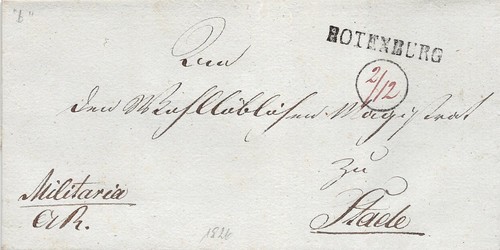 "b"
ROTENBURG
2/12
An
den Wohllöblichen Magistrat
zu
Stade
Militaria
1826